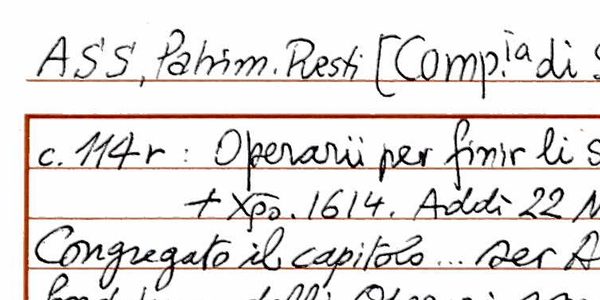 ASS, Patrim. Resti [Comp.ia di S
c. 114r : Operarii per finir li s
+ Xpo. 1614. Addi 22 M
Congregato il capitolo... ser A